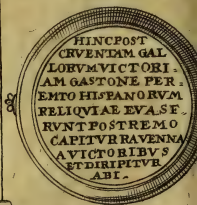 HINC POST
CRVENTAM GAL
LORVM VICTORI-
AM GASTONE PER-
EMTO HISPANORVM
RELIQVIAE EVASE-
RVNT POSTREMO
CAPITVR RAVENNA
A VICTORIBVS
ET DIRIPITVR
ABI.